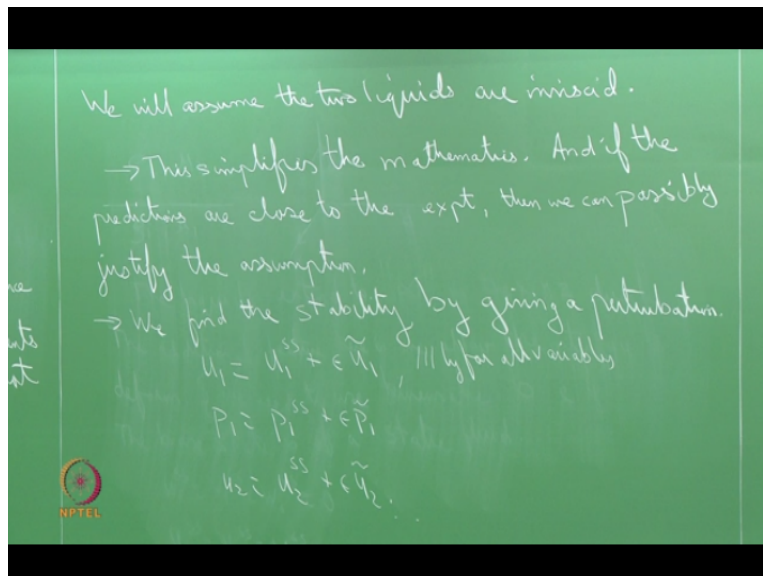 We will assume the two liquids are inviscid.
→ This simplifies the mathematics. And if the
predictions are close to the expt, then we can possibly
justify the assumption.
→ We find the stability by giving a perturbation.
u₁ = u₁ˢˢ + ϵ ũ₁, |||ly for all variables
p₁ = p₁ˢˢ + ϵ p̃₁
u₂ = u₂ˢˢ + ϵ ũ₂. ...
NPTEL